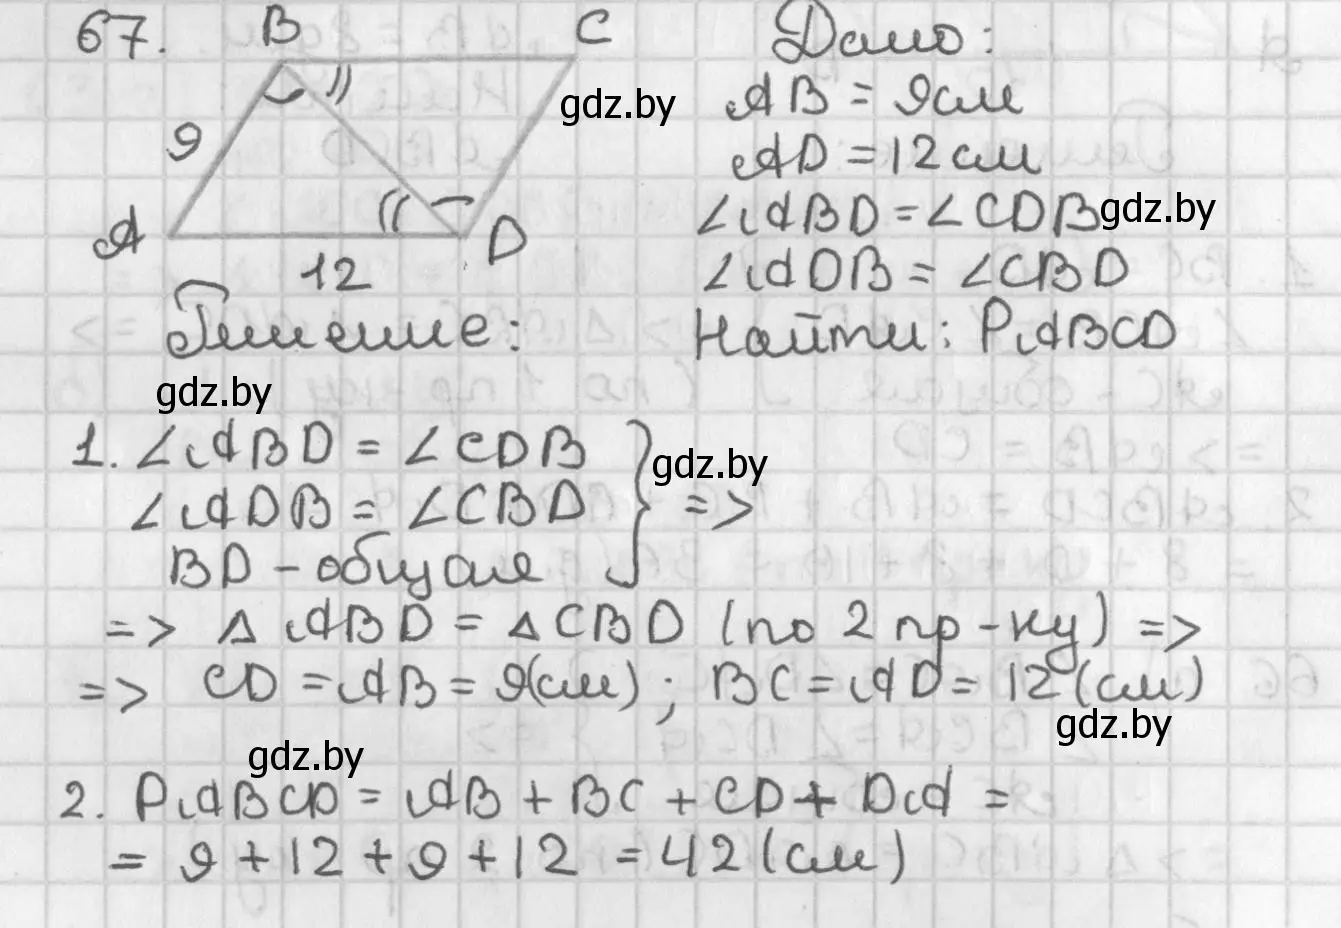 67. B C Дано:
gdz.by
AB = 9см
9
AD = 12см
∠ABD = ∠CDB gdz.by
A D
12
∠ADB = ∠CBD
Решение: Найти: PABCD
gdz.by
1. ∠ABD = ∠CDB
gdz.by
∠ADB = ∠CBD } =>
BD - общая
=> Δ ABD = Δ CBD (по 2 пр-ку) =>
=> CD = AB = 9(см) ; BC = AD = 12 (см)
gdz.by
gdz.by
2. PABCD = AB + BC + CD + DA =
= 9 + 12 + 9 + 12 = 42 (см)